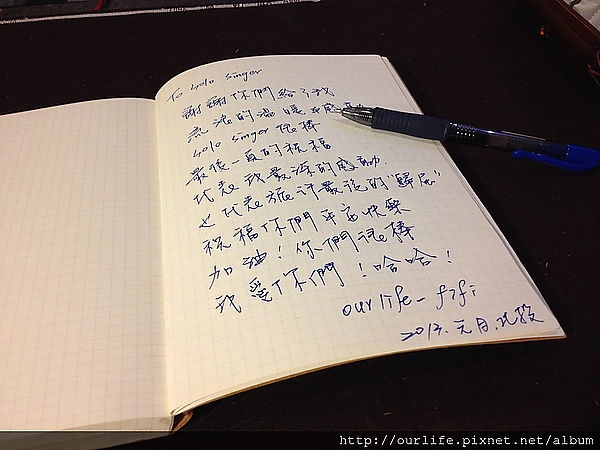 To Solo Singer
謝謝你們給了我
無限的溫暖与感動
Solo Singer 很棒
最後一頁的祝福
代表我最深的感動.
也代表旅行最後的"歸屬"
祝福你們平安快樂
加油！你們很棒
我愛你們！哈哈！
ourlife-fifi
2013.元月.北投
http://ourlife.pixnet.net/album